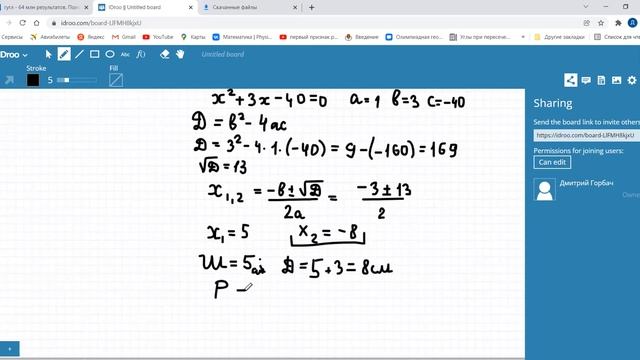 гугл - 64 млн результатов. Пои
IDroo || Untitled board
Скачанные файлы
idroo.com/board-LJFMH8kjxU
Виджеты
Gmail
YouTube
Карты
Новости
Перевести
Математика | Physi
первый признак р
Олимпиадная гео
Углы при пересече
Список для чте
Droo
Untitled board
Stroke
5
Fill
x²+3x-40=0 a=1 в=3 c=-40
Д = в²-4ac
Д = 3²-4·1·(-40) = 9-(-160) = 169
√Д = 13
x₁,₂ = -в±√Д / 2a = -3±13 / 2
x₁ = 5 x₂ = -8
Ш = 5см Д = 5+3 = 8см
P -
Sharing
Send the board link to invite others
https://idroo.com/board-LJFMH8kjxU
Permissions for joining users:
Can edit
Дмитрий Горбач
Owne